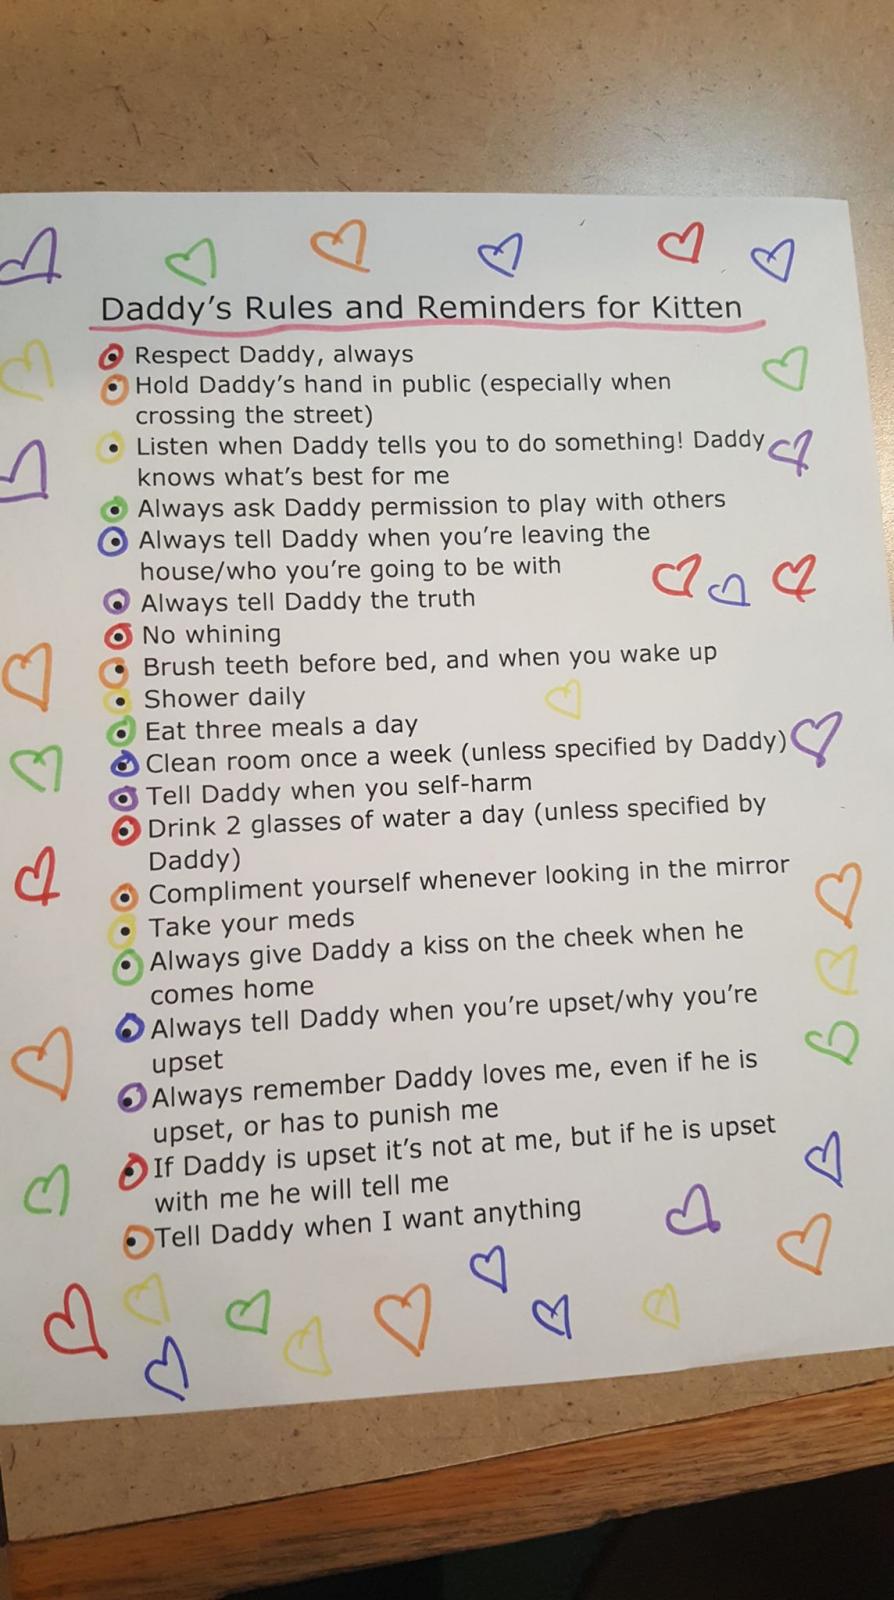 Daddy's Rules and Reminders for Kitten
Respect Daddy, always
Hold Daddy's hand in public (especially when
crossing the street)
Listen when Daddy tells you to do something! Daddy
knows what's best for me
Always ask Daddy permission to play with others
Always tell Daddy when you're leaving the
house/who you're going to be with
Always tell Daddy the truth
No whining
Brush teeth before bed, and when you wake up
Shower daily
Eat three meals a day
Clean room once a week (unless specified by Daddy)
Tell Daddy when you self-harm
Drink 2 glasses of water a day (unless specified by
Daddy)
Compliment yourself whenever looking in the mirror
Take your meds
Always give Daddy a kiss on the cheek when he
comes home
Always tell Daddy when you're upset/why you're
upset
Always remember Daddy loves me, even if he is
upset, or has to punish me
If Daddy is upset it's not at me, but if he is upset
with me he will tell me
Tell Daddy when I want anything